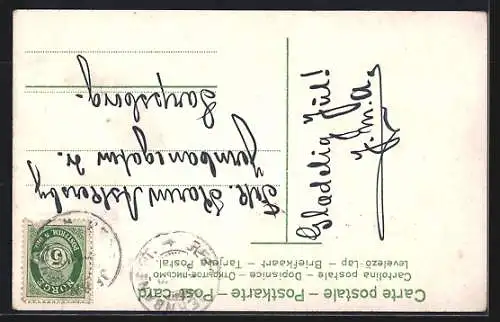 Carte postale – Postkarte – Post-card
Cartolina postale – Dopisnice – Открытое письмо
Levelező-Lap – Briefkaart – Tarjeta Postal
Glædelig Jul!
Frk.
Jernbanegaten
Sarpsborg.
NORGE
5